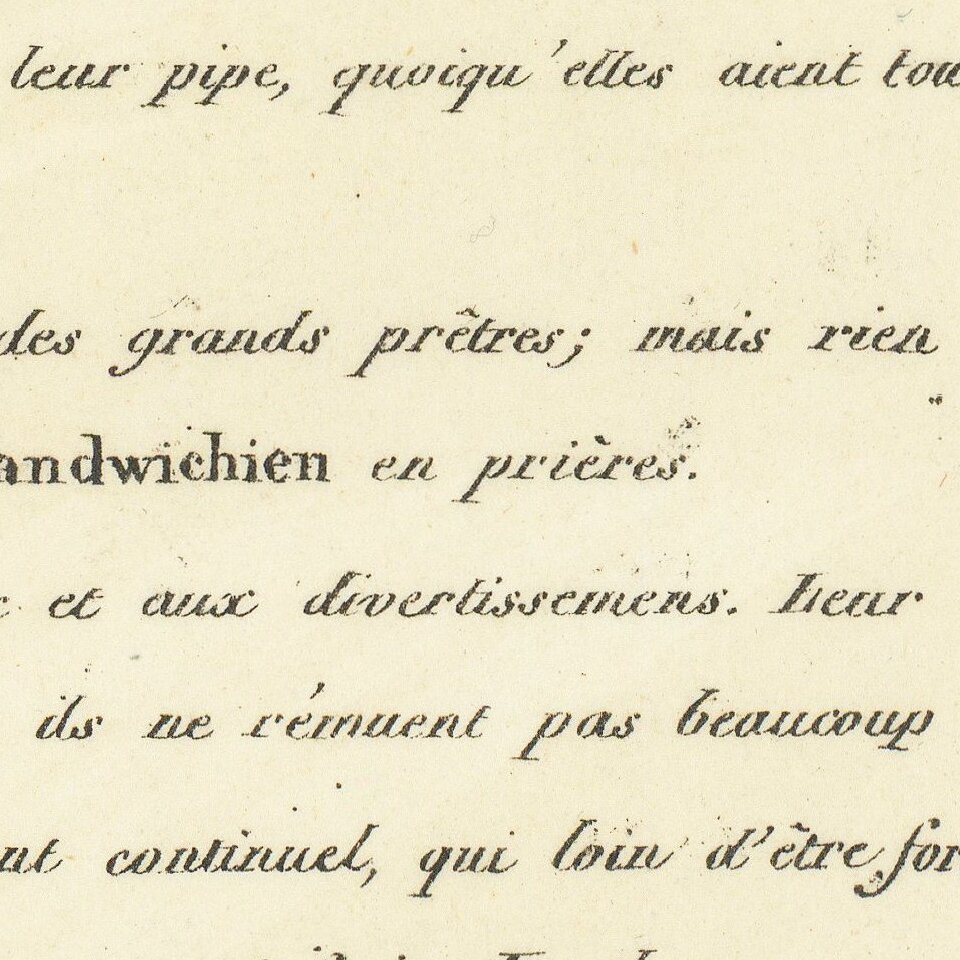 leur pipe, quoiqu'elles aient tou
des grands prêtres; mais rien
andwichien en prières.
et aux divertissemens. Leur
ils ne rémuent pas beaucoup
nt continuel, qui loin d'être for